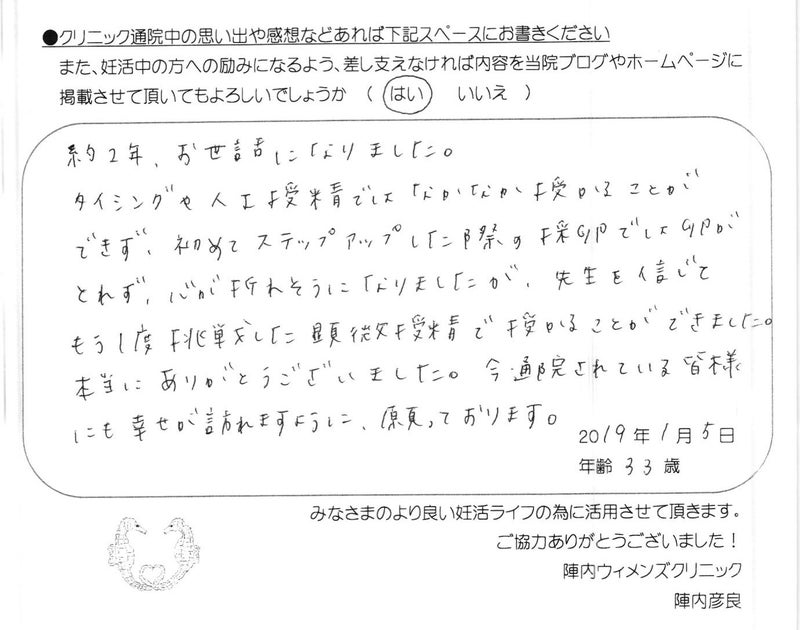 ●クリニック通院中の思い出や感想などあれば下記スペースにお書きください
また、妊活中の方への励みになるよう、差し支えなければ内容を当院ブログやホームページに
掲載させて頂いてもよろしいでしょうか （ はい いいえ ）
約2年、お世話になりました。
タイミングや人工授精ではなかなか授かることが
できず、初めてステップアップした際の採卵では卵が
とれず、心が折れそうになりましたが、先生を信じて
もう1度挑戦した顕微授精で授かることができました。
本当にありがとうございました。今通院されている皆様
にも幸せが訪れますように、願っております。
2019年1月5日
年齢 33歳
みなさまのより良い妊活ライフの為に活用させて頂きます。
ご協力ありがとうございました！
陣内ウィメンズクリニック
陣内彦良